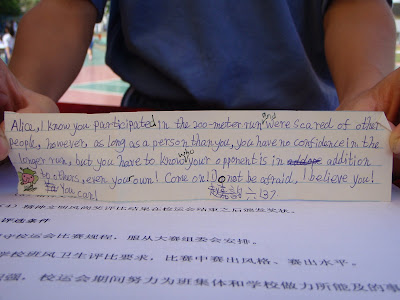 Alice, I know you participated in the 200-meter run and were scared of other
people, however as long as a person than you, you have no confidence in the
longer run, but you have to know who your opponent is in addition
to others, even your own! Come on! Do not be afraid, I believe you!
You can!
六、137
评选条件
守校运会比赛规程,服从大赛组委会安排。
学校班风卫生评比要求,比赛中赛出风格、赛出水平。
强,校运会期间努力为班集体和学校做力所能及的事